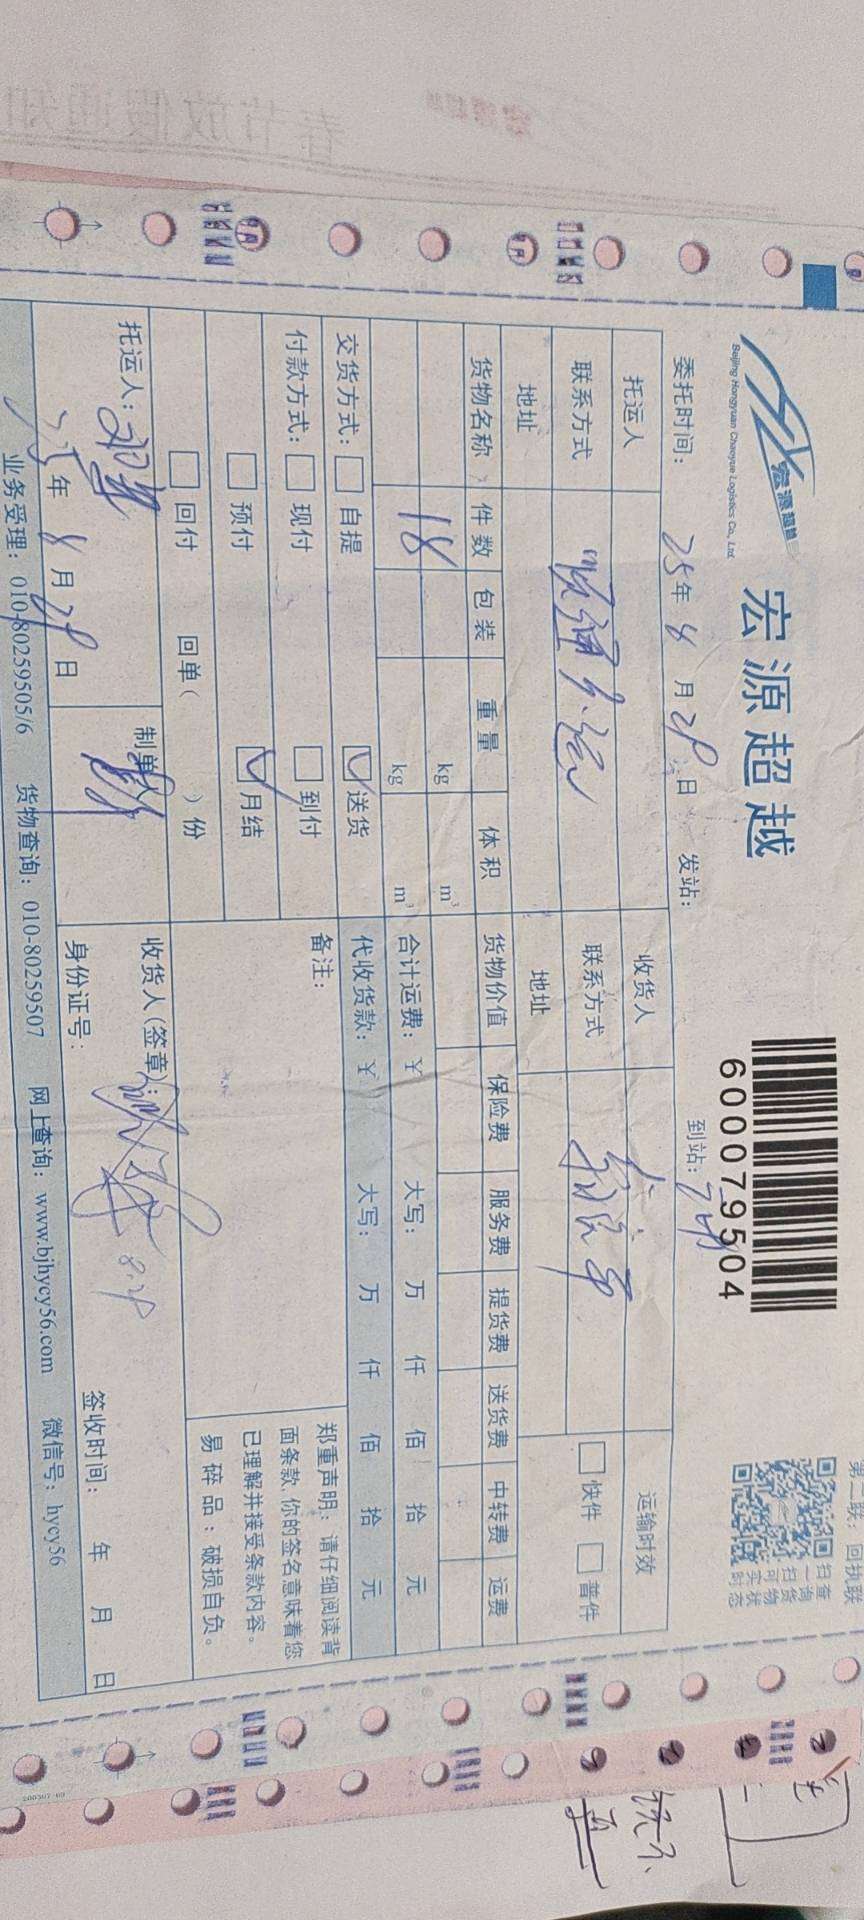 第二联：回执联
宏源超越
Beijing Hongyuan Chaoyue Logistics Co., Ltd.
宏源超越
600079504
扫一扫
查询货物
可实时状态
委托时间：25年8月28日 发站： 到站：
托运人 收货人 运输时效
联系方式 联系方式 快件 普件
地址 地址
货物名称 件数 包装 重量 体积 货物价值 保险费 服务费 提货费 送货费 中转费 运费
18 kg m³
kg m³ 合计运费：¥ 大写： 万 仟 佰 拾 元
交货方式： 自提 送货 代收货款：¥ 大写： 万 仟 佰 拾 元
付款方式： 现付 到付 备注：
预付 月结
回付 回单（ ）份
郑重声明：请仔细阅读背
面条款，你的签名意味着您
已理解并接受条款内容。
易碎品：破损自负。
托运人： 制单人 收货人(签章)： 8.28
25年8月28日 身份证号： 签收时间： 年 月 日
业务受理：010-80259505/6 货物查询：010-80259507 网上查询：www.bjhycy56.com 微信号：hycy56
春节放假通知